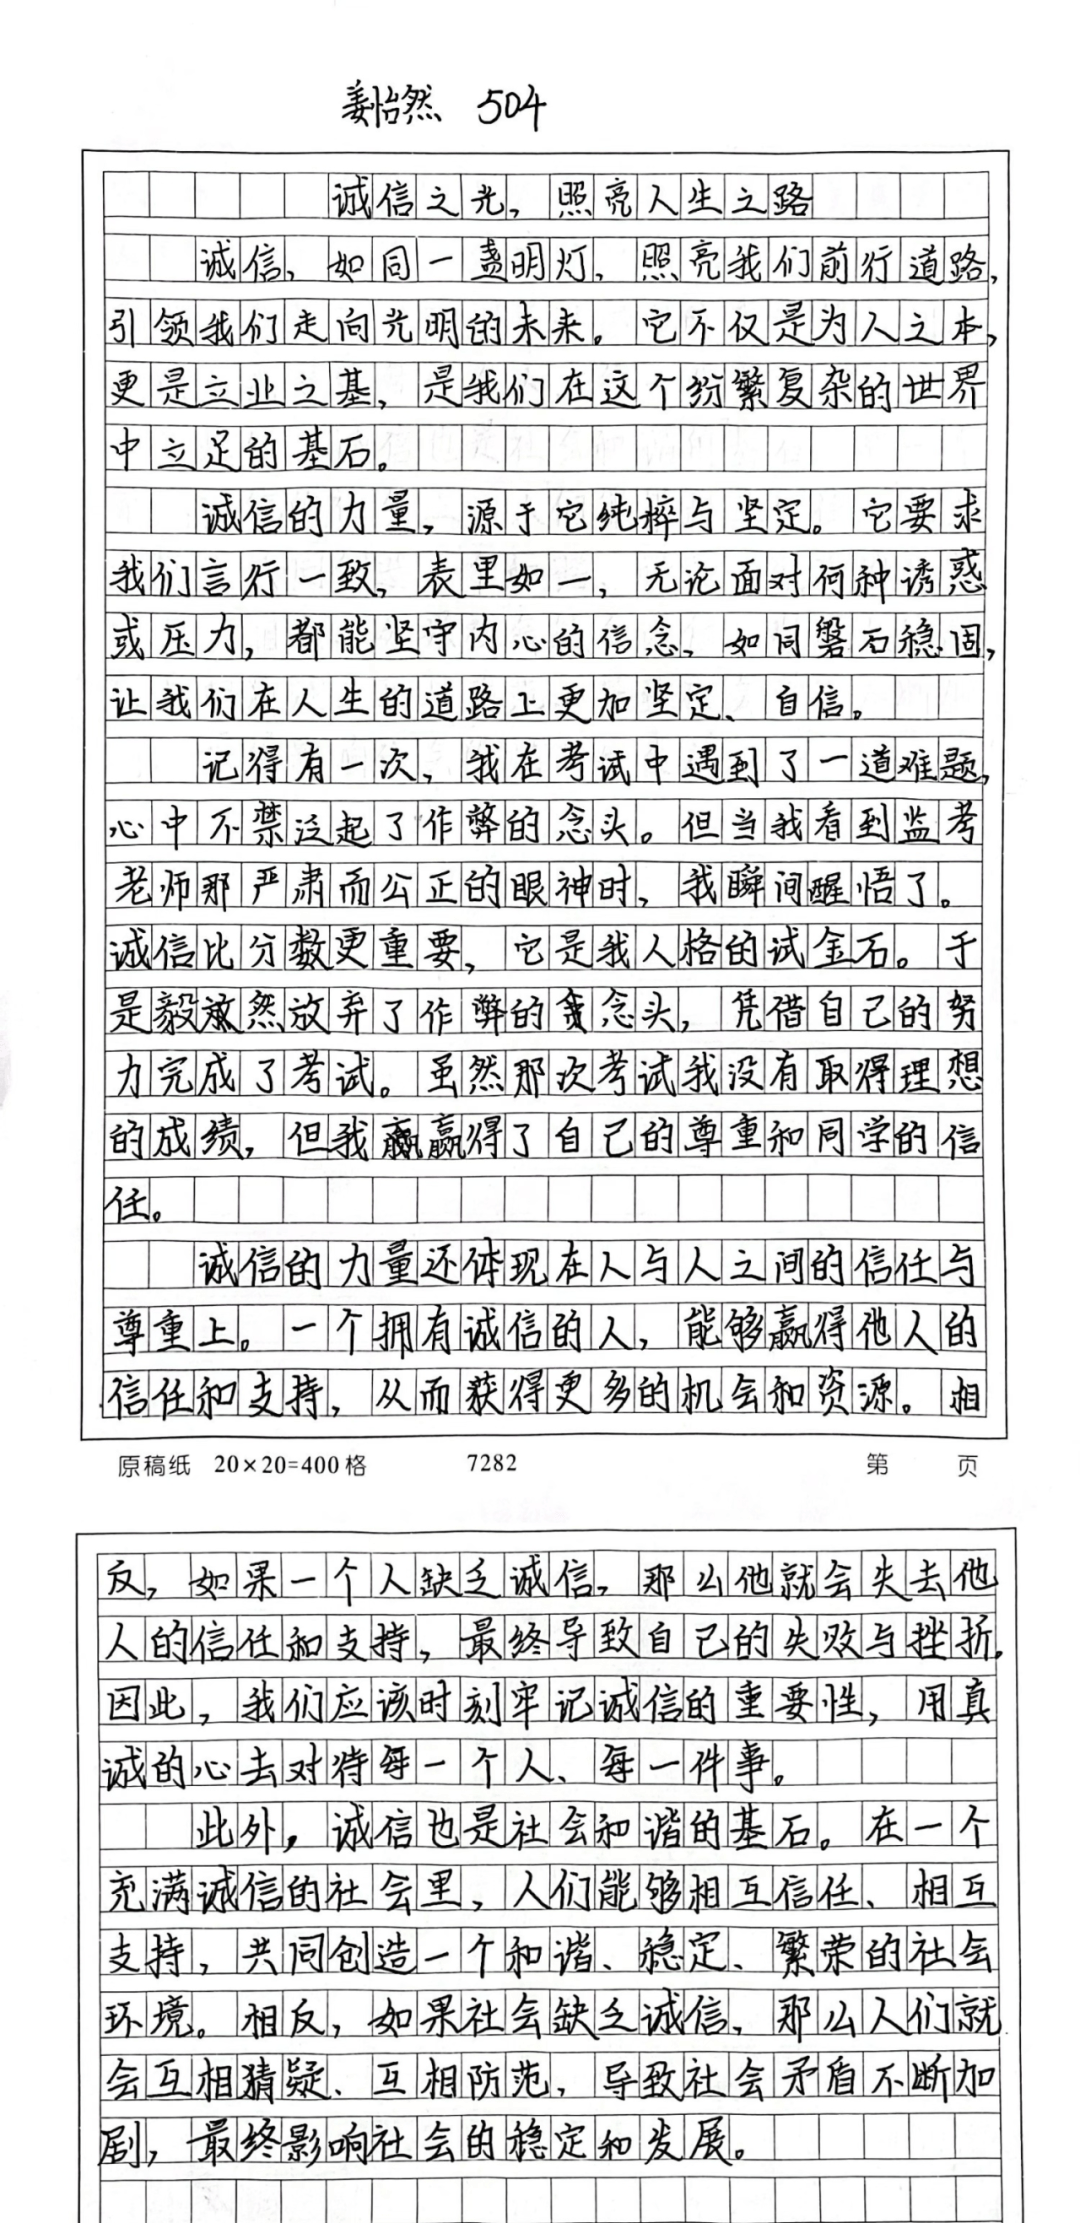 姜怡然 504
诚信之光，照亮人生之路
诚信，如同一盏明灯，照亮我们前行道路，
引领我们走向光明的未来。它不仅是为人之本，
更是立业之基，是我们在这个纷繁复杂的世界
中立足的基石。
诚信的力量，源于它纯粹与坚定。它要求
我们言行一致，表里如一，无论面对何种诱惑
或压力，都能坚守内心的信念，如同磐石稳固，
让我们在人生的道路上更加坚定、自信。
记得有一次，我在考试中遇到了一道难题，
心中不禁泛起了作弊的念头。但当我看到监考
老师那严肃而公正的眼神时，我瞬间醒悟了。
诚信比分数更重要，它是我人格的试金石。于
是毅然放弃了作弊的念头，凭借自己的努
力完成了考试。虽然那次考试我没有取得理想
的成绩，但我赢得了自己的尊重和同学的信
任。
诚信的力量还体现在人与人之间的信任与
尊重上。一个拥有诚信的人，能够赢得他人的
信任和支持，从而获得更多的机会和资源。相
原稿纸 20×20=400格 7282 第 页
反，如果一个人缺乏诚信，那么他就会失去他
人的信任和支持，最终导致自己的失败与挫折。
因此，我们应该时刻牢记诚信的重要性，用真
诚的心去对待每一个人、每一件事。
此外，诚信也是社会和谐的基石。在一个
充满诚信的社会里，人们能够相互信任、相互
支持，共同创造一个和谐、稳定、繁荣的社会
环境。相反，如果社会缺乏诚信，那么人们就
会互相猜疑、互相防范，导致社会矛盾不断加
剧，最终影响社会的稳定和发展。